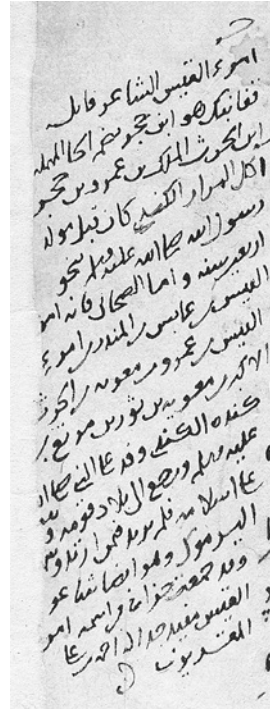 امرء القيس الشاعر قائل
قفا نبك هو ابن حجر بضم الحا المهملة
ابن الحرث الملك بن عمرو بن حجر
اكل المرار الكندي كان قبل مولد
رسول الله صلى الله عليه وسلم بنحو
اربعين سنه واما الصحابي فانه امرو
القيس بن عابس بن المنذر بن امرء
القيس بن عمرو بن معويه بن الحرث
الاكبر بن معويه بن ثور بن مرتع بن
كنده الكندي وفد على النبي صلى الله
عليه وسلم ورجع الى بلاد قومه و
على اسلامه فلم يرتد فيمن ارتد و
اليرموك وهو ايضا شاعر
وقد جمعت جزا في اسمه امرو
القيس مفيد جدا الى اخر